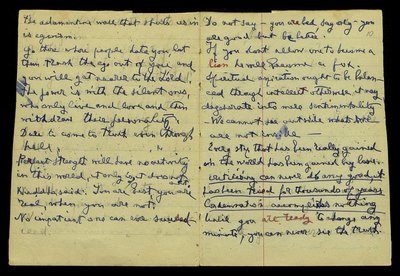 The adamantine wall that shuts us in
is egoism.
Go there where people hate you let
them thrash the ego out of you and
you will get nearer to the Lord!
The power is with the silent ones,
who only live and love and then
withdraw their personality.
Dare to come to Truth even through
hell.
Perfect thought will have no
in this world, it only
said: You are just, you are
real when you are not.
No impatient one can ever succeed
10
Do not say - you are bad, say only - you
are good but be better!
If you don't allow one to become a
lion he will become a fox.
Spiritual aspiration ought to be balan-
ced through intellect otherwise it may
degenerate into mere sentimentality
We cannot see outside what we
are not inside -
Every step that has been really gained
in the world has been gained by love.
criticising can never do any good, it
has been tried for thousands of years.
Condemnation accomplishes nothing
Until you are ready to change any
minute, you can never see the truth.